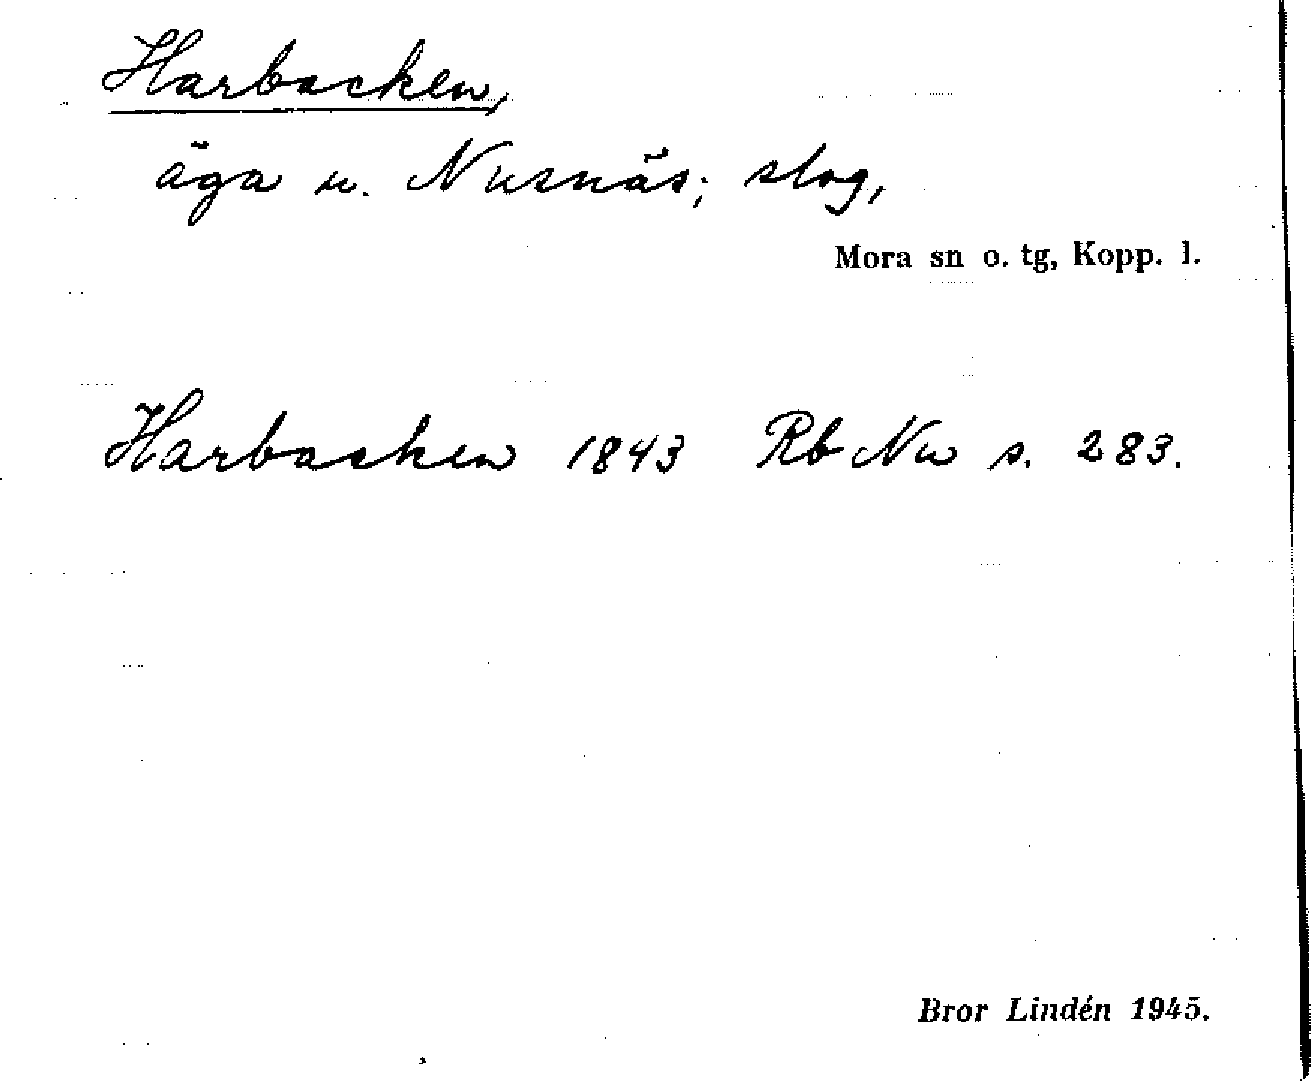 Harbacken,
äga u. Nusnäs; slog,
Mora sn o. tg, Kopp. l.
Harbacken 1843 Rb Nu s. 283.
Bror Lindén 1945.